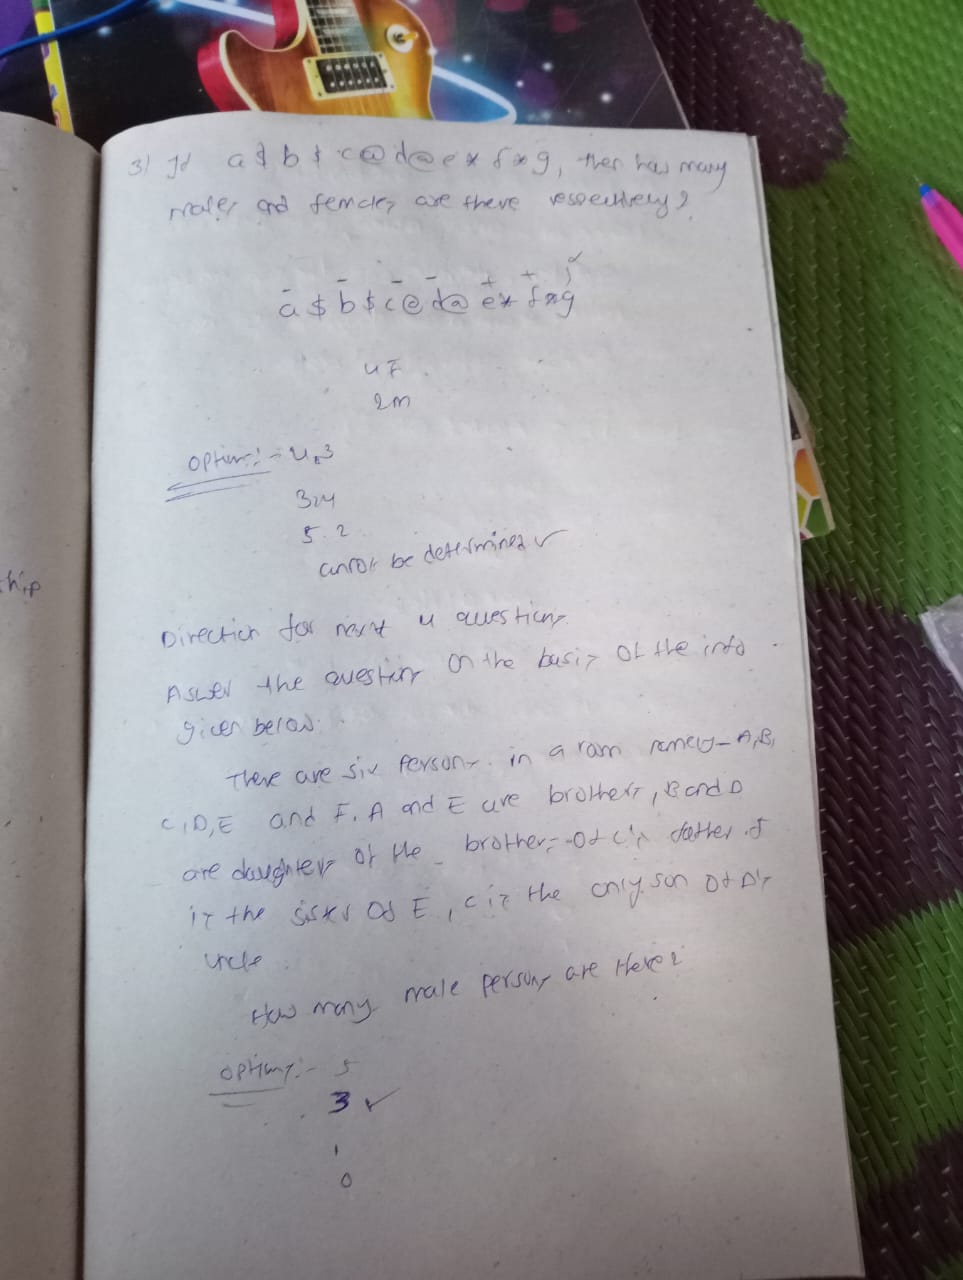 3) If a $ b $ c @ d @ e * f * g, then how many
males and females are there respectively?
- - - - + +
a $ b $ c @ d @ e * f * g
4F
2m
Options:- 4,3
3,4
5.2
cannot be determined ✓
ship
Direction for next 4 questions.
Answer the questions on the basis of the info
given below.
There are six persons in a room namely- A,B,
C,D,E and F. A and E are brothers, B and D
are daughters of the brothers-of C's father. F
is the sister of E, C is the only son of D's
uncle
How many male persons are there?
Options:- 5
3 ✓
1
0